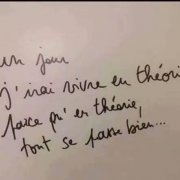 un jour
j'irai vivre en théorie
parce qu'en théorie,
tout se passe bien...